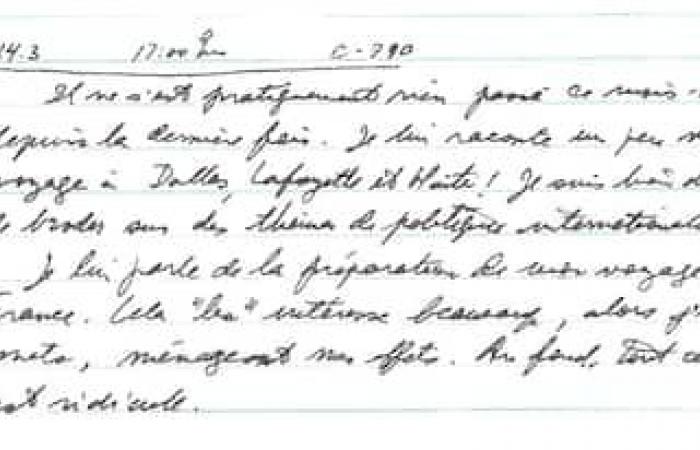 14.3 17:00 C-790
Il ne s'est pratiquement rien passé ce mois-
depuis la dernière fois. Je lui raconte un peu
voyage à Dallas, Lafayette et Haïti! Je suis
de broder sur des thèmes de politique internationale
Je lui parle de la préparation de mon voyage
France. Cela "les" intéresse beaucoup, alors j'
mets, ménageant mes effets. Au fond, tout
est ridicule.